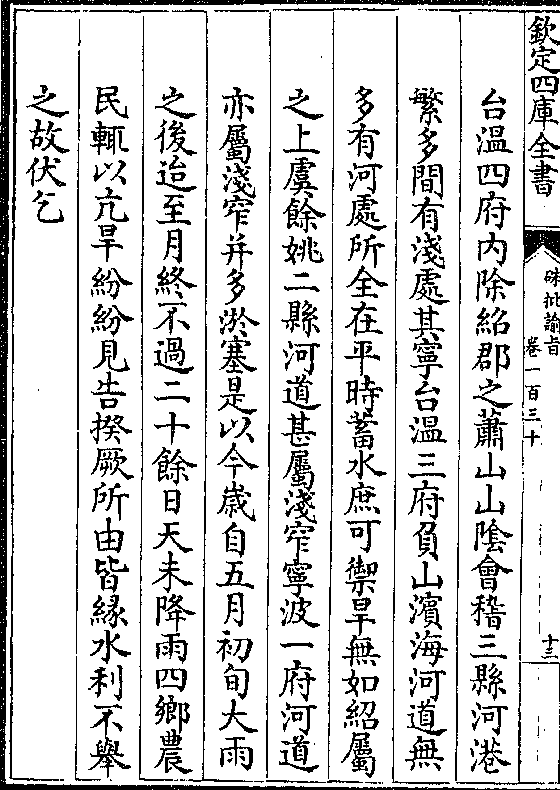 欽定四庫全書
硃批諭旨
卷一百三十
十三
台温四府内除紹郡之蕭山山陰會稽三縣河港
繁多間有淺處其寧台温三府負山濵海河道無
多有河處所全在平時蓄水庶可禦旱無如紹屬
之上虞餘姚二縣河道甚屬淺窄寧波一府河道
亦屬淺窄并多淤塞是以今歲自五月初旬大雨
之後迨至月終不過二十餘日天未降雨四鄉農
民輒以亢旱紛紛見告揆厥所由皆縁水利不舉
之故伏乞